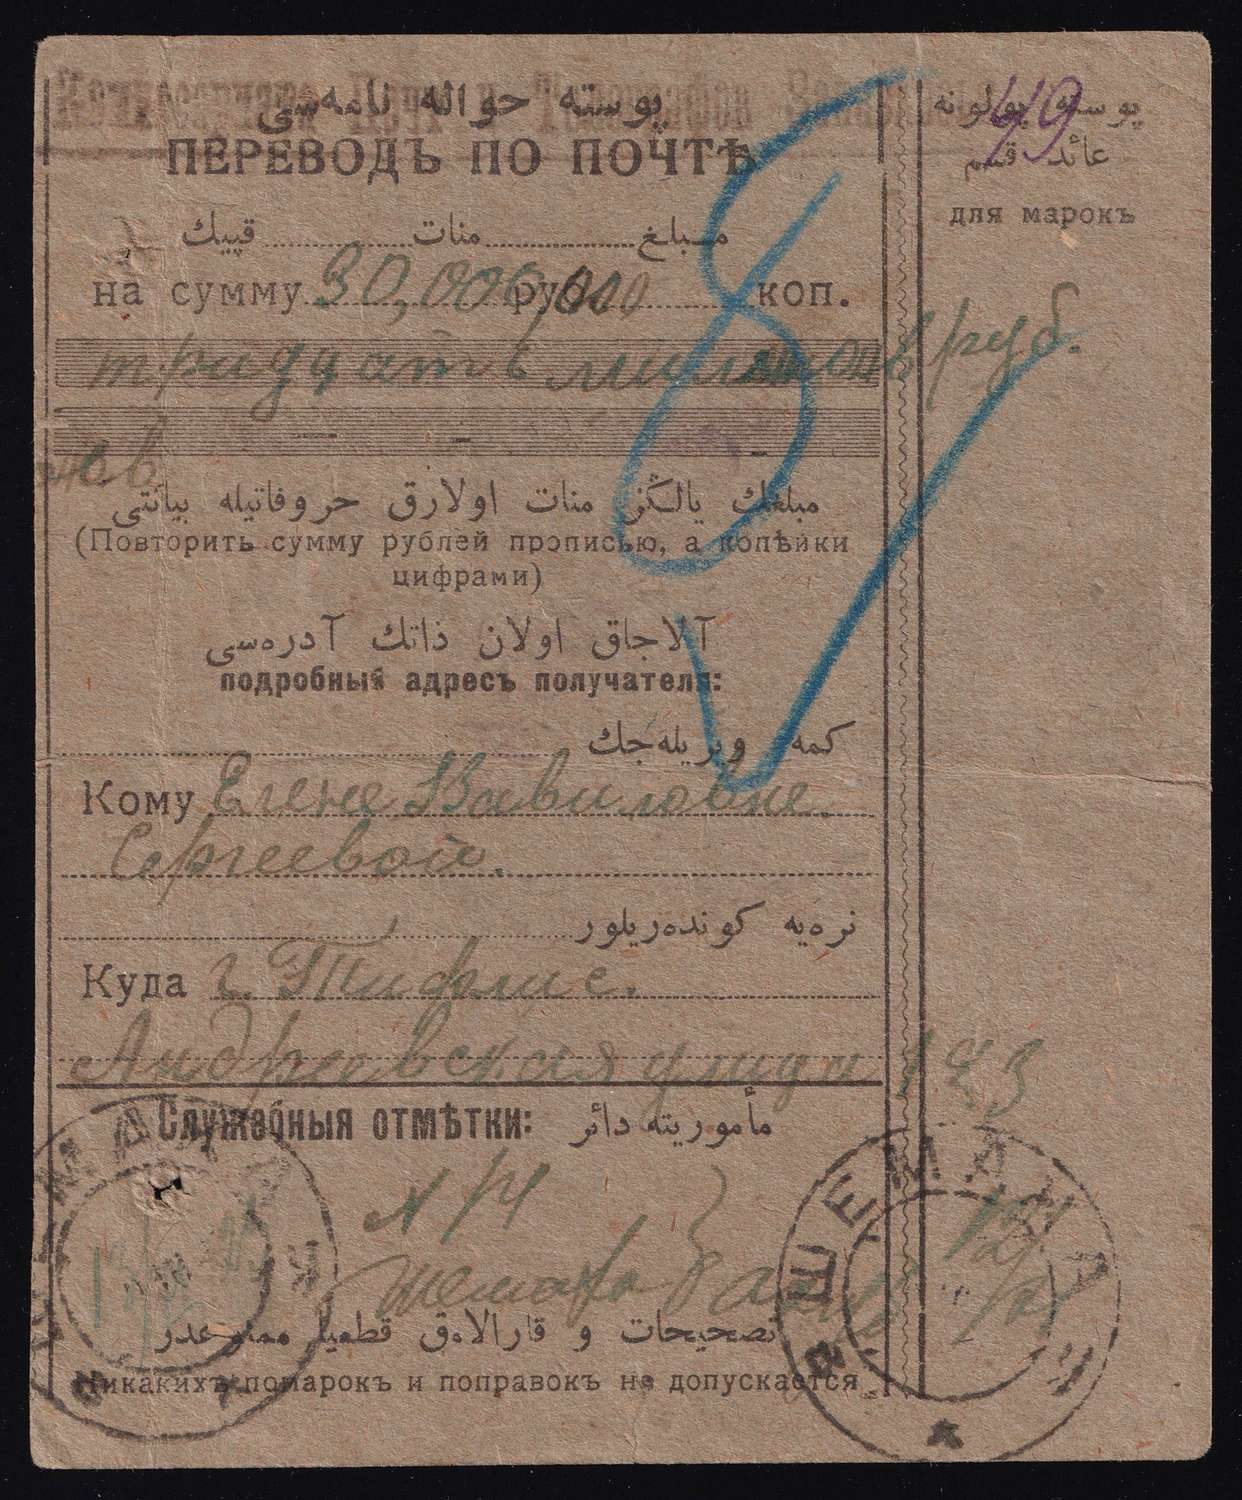 پوسته حواله نامه‌سی
ПЕРЕВОДЪ ПО ПОЧТѢ
پوسته پولونه
عائد قسم
49
для марокъ
مبلغ منات قپيك
на сумму 30,000,000 руб. коп.
тридцать руб.
مبلغك يالڭز منات اولارق حروفاتيله بيانتى
(Повторить сумму рублей прописью, а копѣйки
цифрами)
آلاجاق اولان ذاتك آدره‌سى
подробный адресъ получателя:
كمه ويريله‌جك
Кому Елене Вавиловне
Сергеевой.
نره‌يه كونده‌ريلور
Куда г. Тифлис.
Андреевская улица 123
Служебныя отмѣтки:
مأموريته دائر
N 14
Шемаха
ШЕМАХА
تصحيحات و قارالامق قطعيا ممنوعدر
Никакихъ помарокъ и поправокъ не допускается